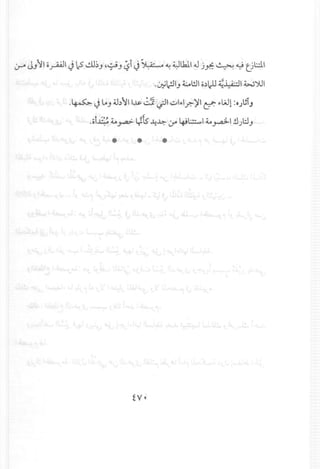 المتنازع فيه بحيث يجوز له المطالبة به مستقبلاً في أيِّ وقتٍ، وذلك كما في الفقرة الأولى من
اللائحة التنفيذيَّة للمادة الثامنة والثمانين.
وآثاره: إلغاء جميع الإجراءات التي تمَّت عدا الأدلة وما في حكمها.
ولتارك الخصومة استئنافها من جديد كأنَّها خصومة مُبْتَدأة.
• • •
٤٧٠